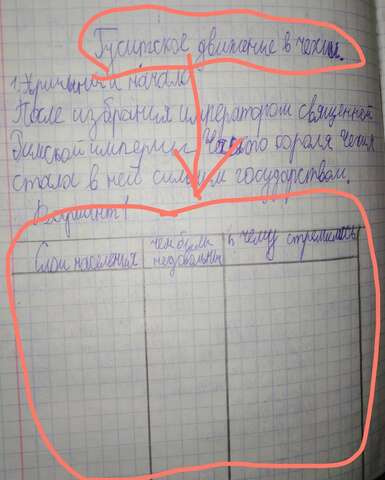 Гуситское движение в Чехии.
1. Причины и начало
После избрания императором священной
Римской империи Чешского короля Чехия
стала в ней сильным государством.
Вариант 1
Слои населения
Чем были недовольны
К чему стремились